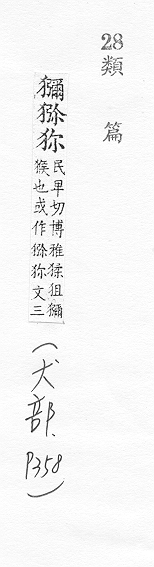 28
類篇
獼狝
民卑切博雅猱狙獼
猴也或作狝文三
(犬部、P358)